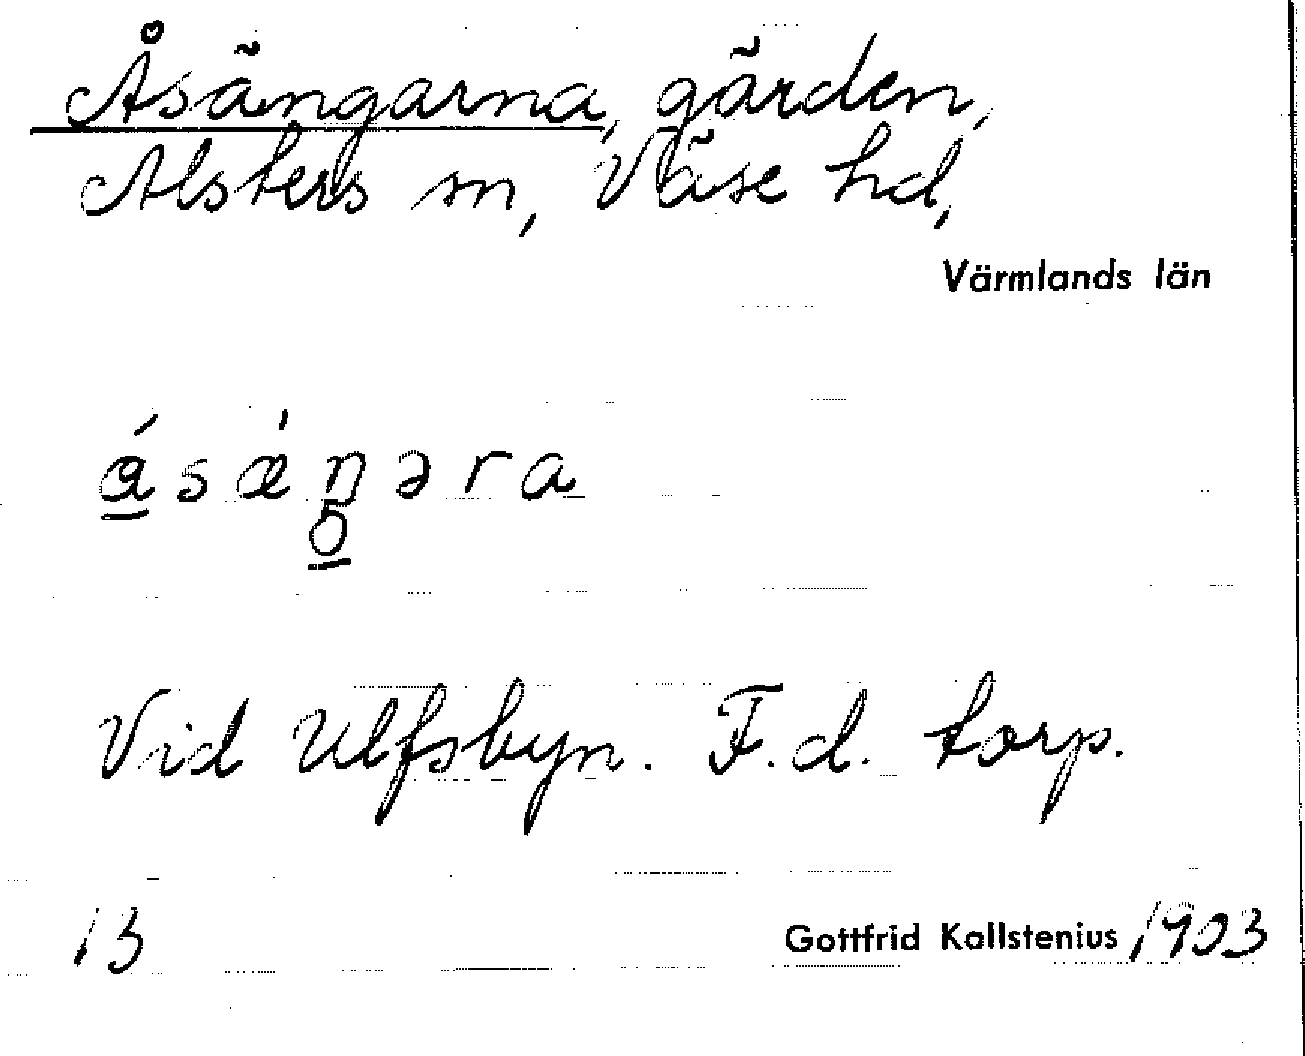 Åsängarna, gärden,
Alsters sn, Väse hd,
Värmlands län
åsæ̀ŋəra
Vid Ulfsbyn. F.d. torp.
13 Gottfrid Kallstenius 1903